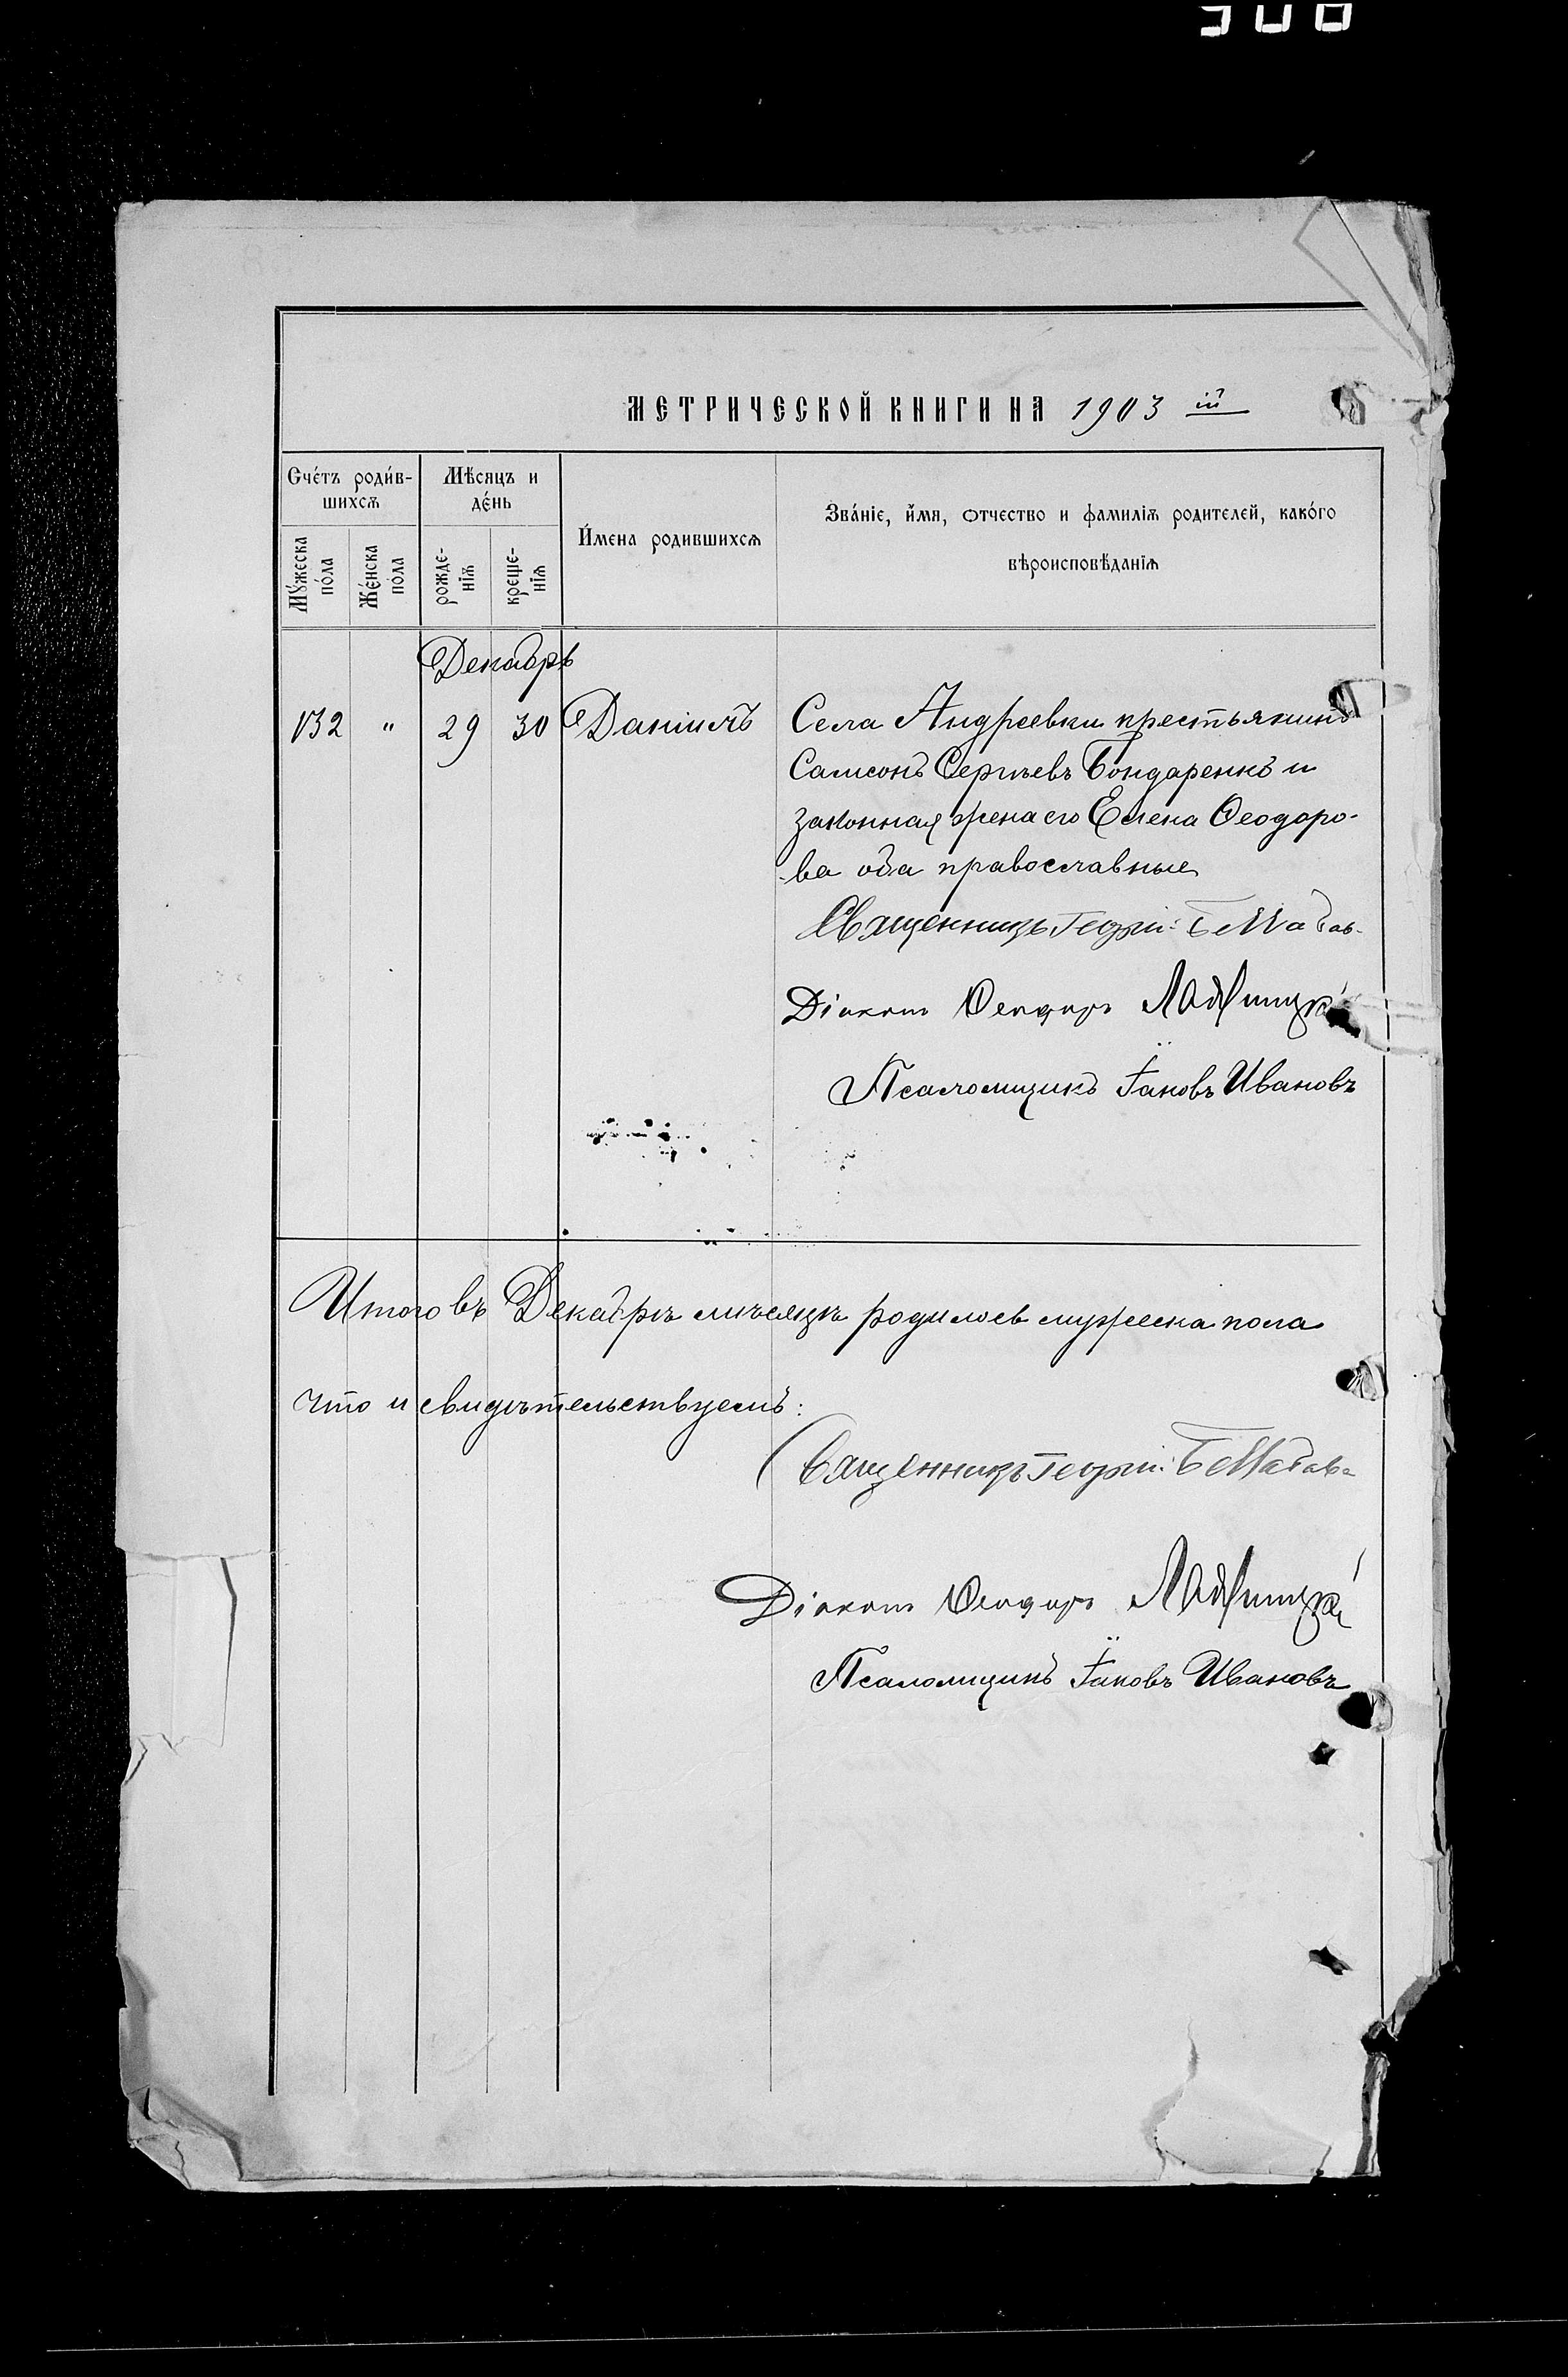 МЕТРИЧЕСКОЙ КНИГИ НА 1903 ій
Счетъ родив-
шихся
Мѣсяцъ и
день
Имена родившихся
Званіе, имя, отчество и фамилія родителей, какого
вѣроисповѣданія
Мужеска
пола
Женска
пола
рожде-
нія
креще-
нія
Декабрь
132 " 29 30 Даніилъ Села Андреевки крестьянинъ
Самсонъ Сергіевъ Бондаренко и
законная жена его Елена Ѳеодоро-
ва оба православные
Священникъ Георгій
Діаконъ Ѳеодоръ
Псаломщикъ Іаковъ Ивановъ
Итого въ Декабрѣ мѣсяцѣ родилось мужеска пола
что и свидѣтельствуемъ:
Священникъ Георгій
Діаконъ Ѳеодоръ
Псаломщикъ Іаковъ Ивановъ